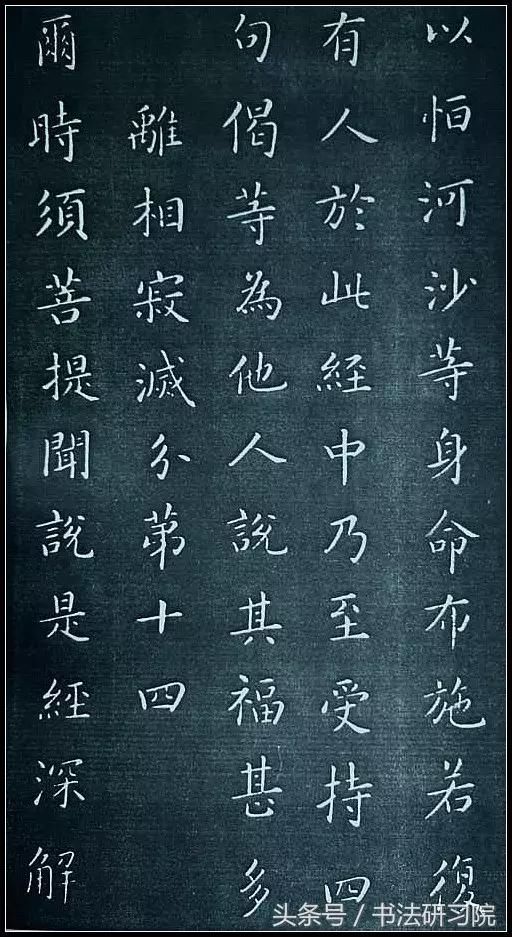 以恒河沙等身命布施若復
有人於此經中乃至受持四
句偈等為他人說其福甚多
離相寂滅分第十四
爾時須菩提聞說是經深解
头条号 / 书法研习院